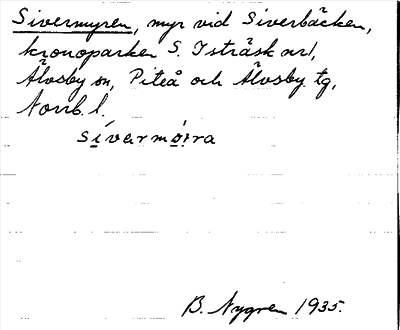 Sivermyren, myr vid Siverbäcken,
kronoparken S. Isträsk nr 1,
Älvsby sn, Piteå och Älvsby tg,
Norrb. l.
B. Nygren 1935.